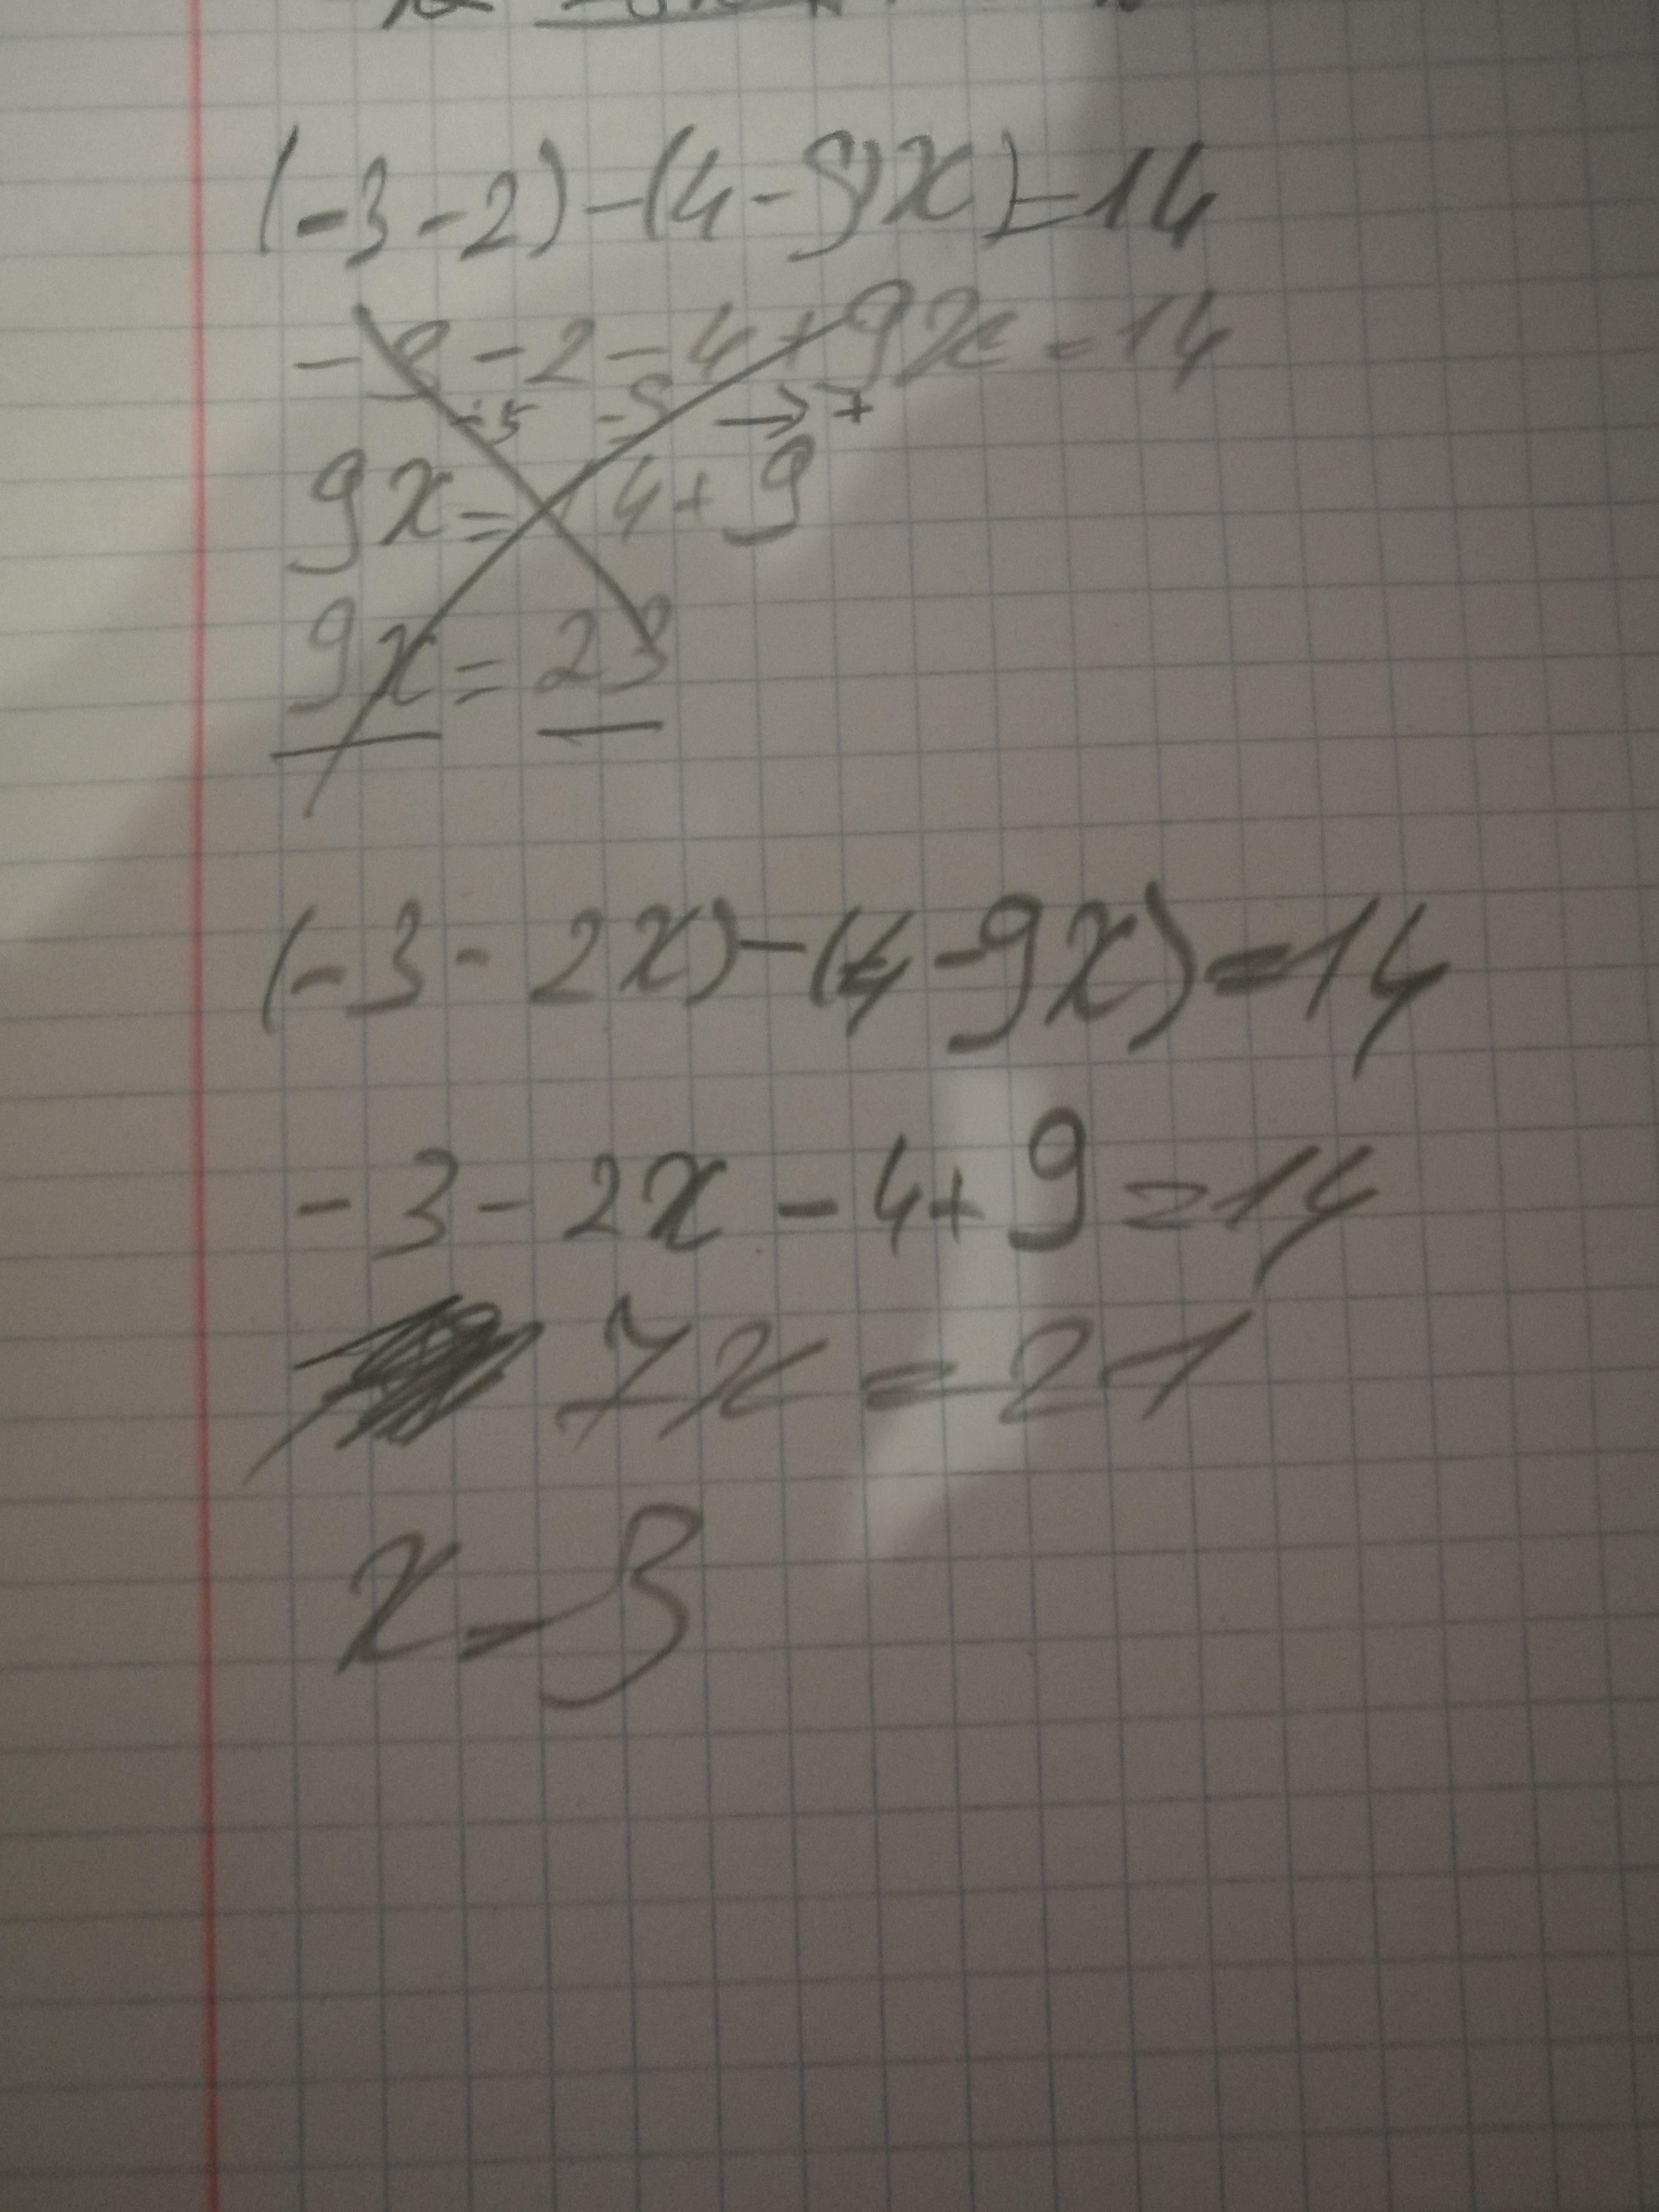 (-3-2)-(4-9)x)=14
-3-2-4+9x=14
-5 -5 →7
9x=14+9
9x=23
(-3-2x)-(4-9x)=14
-3-2x-4+9=14
7x=21
x=3